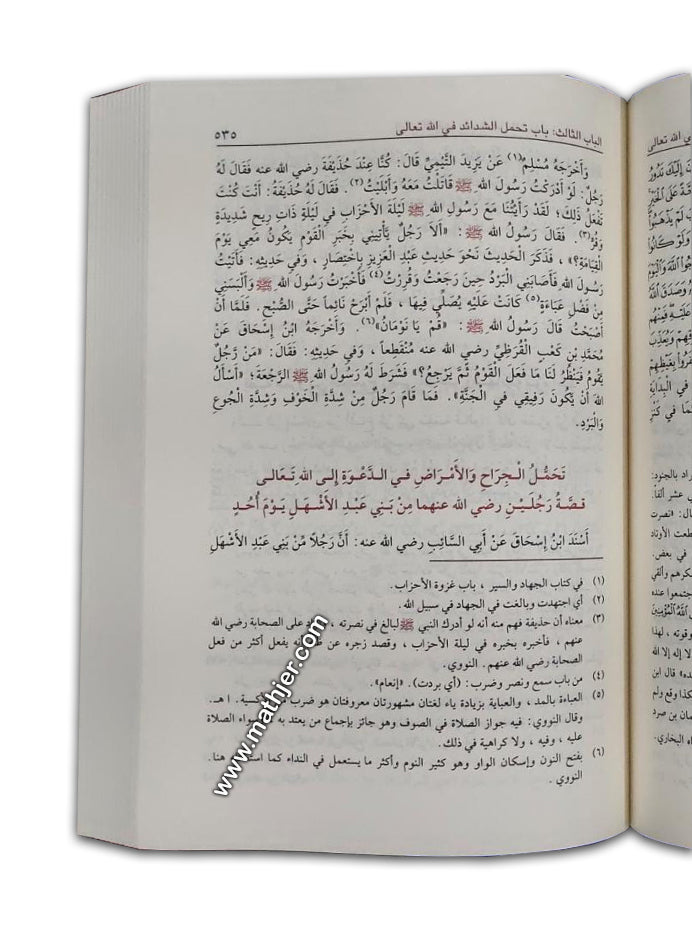 الباب الثالث: باب تحمل الشدائد في الله تعالى
٥٣٥
وَأَخْرَجَهُ مُسْلِمٌ(١) عَنْ يَزِيدَ التَّيْمِيِّ قَالَ: كُنَّا عِنْدَ حُذَيْفَةَ رضي الله عنه فَقَالَ لَهُ
رَجُلٌ: لَوْ أَدْرَكْتُ رَسُولَ اللهِ ﷺ قَاتَلْتُ مَعَهُ وَأَبْلَيْتُ(٢). فَقَالَ لَهُ حُذَيْفَةُ: أَنْتَ كُنْتَ
تَفْعَلُ ذٰلِكَ؛ لَقَدْ رَأَيْتُنَا مَعَ رَسُولِ اللهِ ﷺ لَيْلَةَ الأَحْزَابِ فِي لَيْلَةٍ ذَاتِ رِيحٍ شَدِيدَةٍ
وَقُرٍّ(٣). فَقَالَ رَسُولُ اللهِ ﷺ: «أَلاَ رَجُلٌ يَأْتِينِي بِخَبَرِ الْقَوْمِ يَكُونُ مَعِي يَوْمَ
الْقِيَامَةِ؟» ، فَذَكَرَ الْحَدِيثَ نَحْوَ حَدِيثِ عَبْدِ الْعَزِيزِ بِاخْتِصَارٍ ، وَفِي حَدِيثِهِ: فَأَتَيْتُ
رَسُولَ اللهِ فَأَصَابَنِي الْبَرْدُ حِينَ رَجَعْتُ وَقُرِرْتُ(٤) فَأَخْبَرْتُ رَسُولَ اللهِ ﷺ وَأَلْبَسَنِي
مِنْ فَضْلِ عَبَاءَةٍ(٥) كَانَتْ عَلَيْهِ يُصَلِّي فِيهَا ، فَلَمْ أَبْرَحْ نَائِماً حَتَّى الصُّبْحِ. فَلَمَّا أَنْ
أَصْبَحْتُ قَالَ رَسُولُ اللهِ ﷺ: «قُمْ يَا نَوْمَانُ»(٦). وَأَخْرَجَهُ ابْنُ إِسْحَاقَ عَنْ
مُحَمَّدِ بْنِ كَعْبٍ الْقُرَظِيِّ رضي الله عنه مُنْقَطِعاً ، وَفِي حَدِيثِهِ: فَقَالَ: «مَنْ رَّجُلٌ
يَقُومُ فَيَنْظُرُ لَنَا مَا فَعَلَ الْقَوْمُ ثُمَّ يَرْجِعُ؟» فَشَرَطَ لَهُ رَسُولُ اللهِ ﷺ الرَّجْعَةَ؛ «أَسْأَلُ
اللهَ أَنْ يَّكُونَ رَفِيقِي فِي الْجَنَّةِ». فَمَا قَامَ رَجُلٌ مِنْ شِدَّةِ الْخَوْفِ وَشِدَّةِ الْجُوعِ
وَالْبَرْدِ.
تَحَمُّلُ الْجِرَاحِ وَالأَمْرَاضِ فِي الدَّعْوَةِ إِلَى اللهِ تَعَالَى
قِصَّةُ رَجُلَيْنِ رضي الله عنهما مِنْ بَنِي عَبْدِ الأَشْهَلِ يَوْمَ أُحُدٍ
أَسْنَدَ ابْنُ إِسْحَاقَ عَنْ أَبِي السَّائِبِ رضي الله عنه: أَنَّ رَجُلًا مِّنْ بَنِي عَبْدِ الأَشْهَلِ
(١) في كتاب الجهاد والسير ، باب غزوة الأحزاب.
(٢) أي اجتهدت وبالغت في الجهاد في سبيل الله.
(٣) معناه أن حذيفة فهم منه أنه لو أدرك النبي ﷺ لبالغ في نصرته ، على الصحابة رضي الله
عنهم ، فأخبره بخبره في ليلة الأحزاب ، وقصد زجره عن يفعل أكثر من فعل
الصحابة رضي الله عنهم. النووي.
(٤) من باب سمع ونصر وضرب: (أي بردت). «إنعام».
(٥) العباءة بالمد ، والعباية بزيادة ياء لغتان مشهورتان معروفتان هو ضرب اهـ.
وقال النووي: فيه جواز الصلاة في الصوف وهو جائز بإجماع من يعتد به الصلاة
عليه ، وفيه ، ولا كراهية في ذلك.
(٦) بفتح النون وإسكان الواو وهو كثير النوم وأكثر ما يستعمل في النداء كما هنا.
النووي.
www.mathjer.com